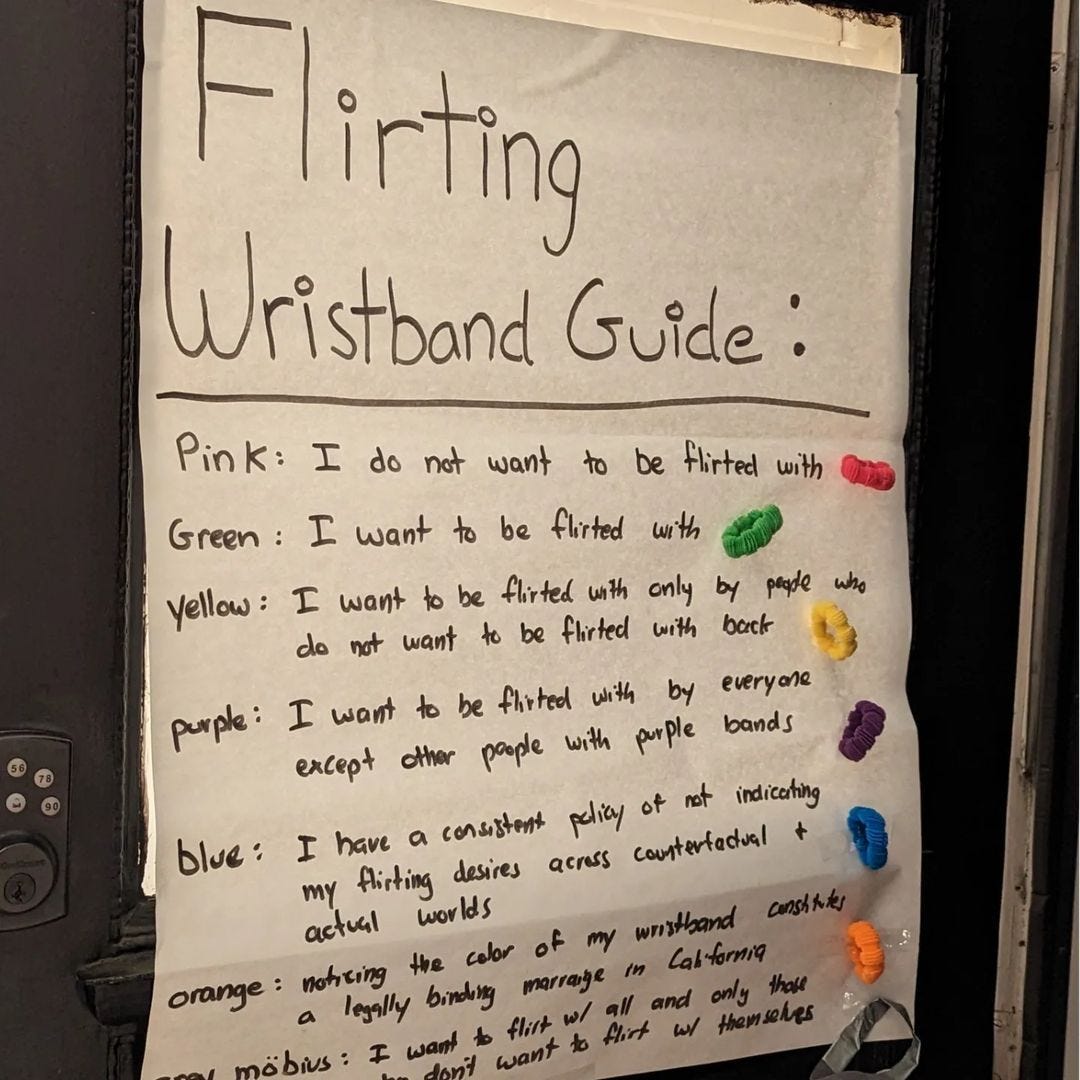 Flirting
Wristband Guide:
Pink: I do not want to be flirted with
Green: I want to be flirted with
yellow: I want to be flirted with only by people who
do not want to be flirted with back
purple: I want to be flirted with by everyone
except other people with purple bands
blue: I have a consistent policy of not indicating
my flirting desires across counterfactual +
actual worlds
orange: noticing the color of my wristband constitutes
a legally binding marraige in California
möbius: I want to flirt w/ all and only those
don't want to flirt w/ themselves
56
78
90